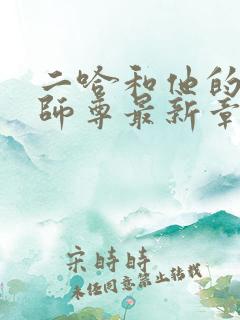 二哈和他的
師尊最新章
宋時時
未经同意禁止转载